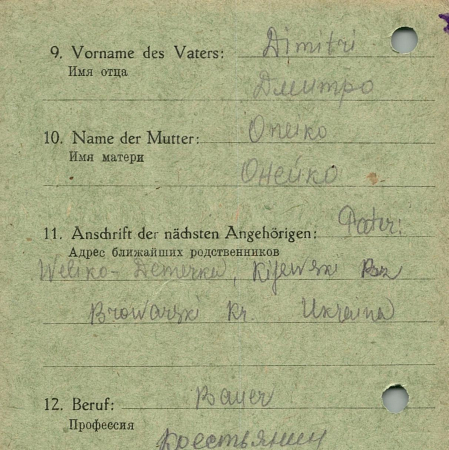 9. Vorname des Vaters: Dimitri
Имя отца
Дмитро
10. Name der Mutter: Oneiko
Имя матери
Онейко
11. Anschrift der nächsten Angehörigen: Pater:
Адрес ближайших родственников
Weliko-Demerka, Kijewski Bez
Browarski Kr. Ukraina
12. Beruf: Bauer
Профессия
Крестьянин